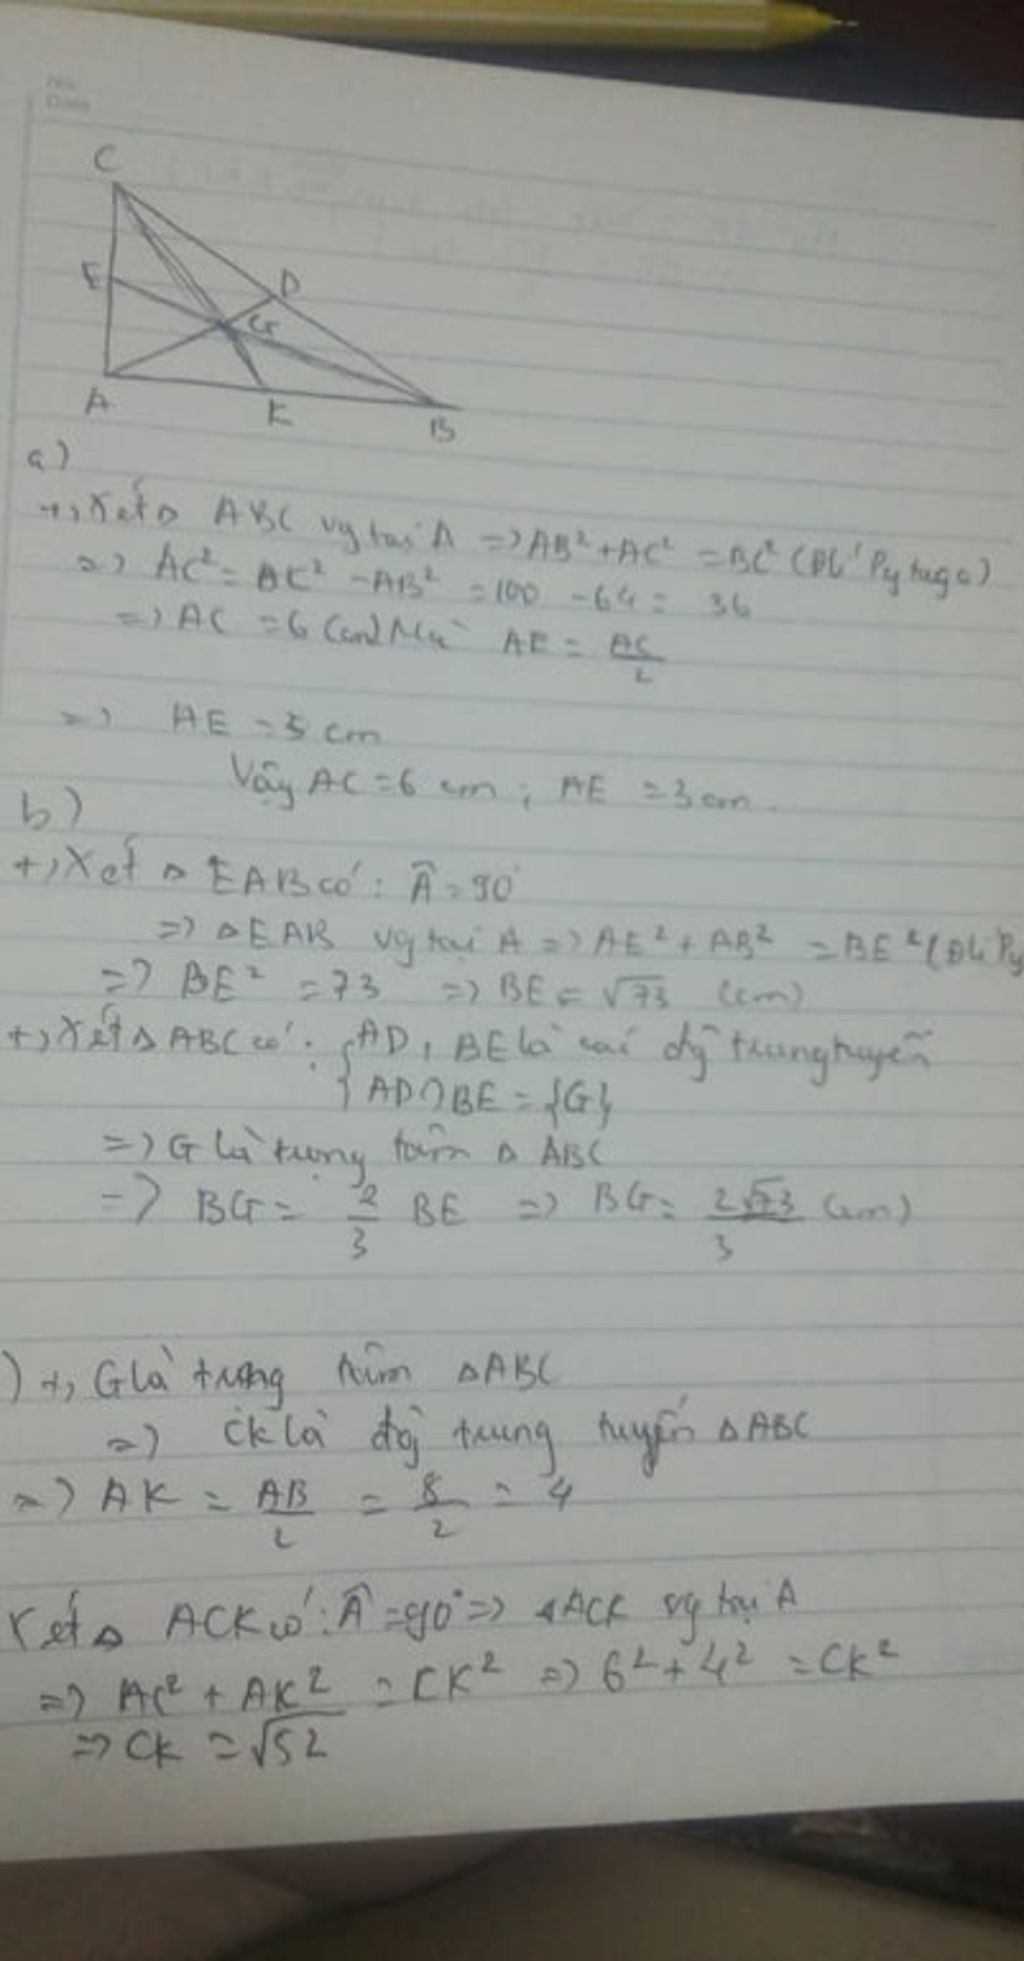 No
Date
C
E
D
G
A
K
B
a)
+, Xét △ ABC vg tại A => AB² + AC² = BC² (ĐL Pytago)
=> AC² = BC² - AB² = 100 - 64 = 36
=> AC = 6 (cm) Mà AE = AC/2
=> AE = 3 cm
Vậy AC = 6 cm ; AE = 3 cm.
b)
+, Xét △ EAB có : Â = 90°
=> △EAB vg tại A => AE² + AB² = BE² (ĐL Py
=> BE² = 73 => BE = √73 (cm)
+, Xét △ ABC có : { AD, BE là các đg trung tuyến
AD ∩ BE = {G}
=> G là trọng tâm △ ABC
=> BG = 2/3 BE => BG = 2√73/3 (cm)
) +, G là trọng tâm △ABC
=> CK là đg trung tuyến △ABC
=> AK = AB/2 = 8/2 = 4
Xét △ ACK có : Â = 90° => △ACK vg tại A
=> AC² + AK² = CK² => 6² + 4² = CK²
=> CK = √52